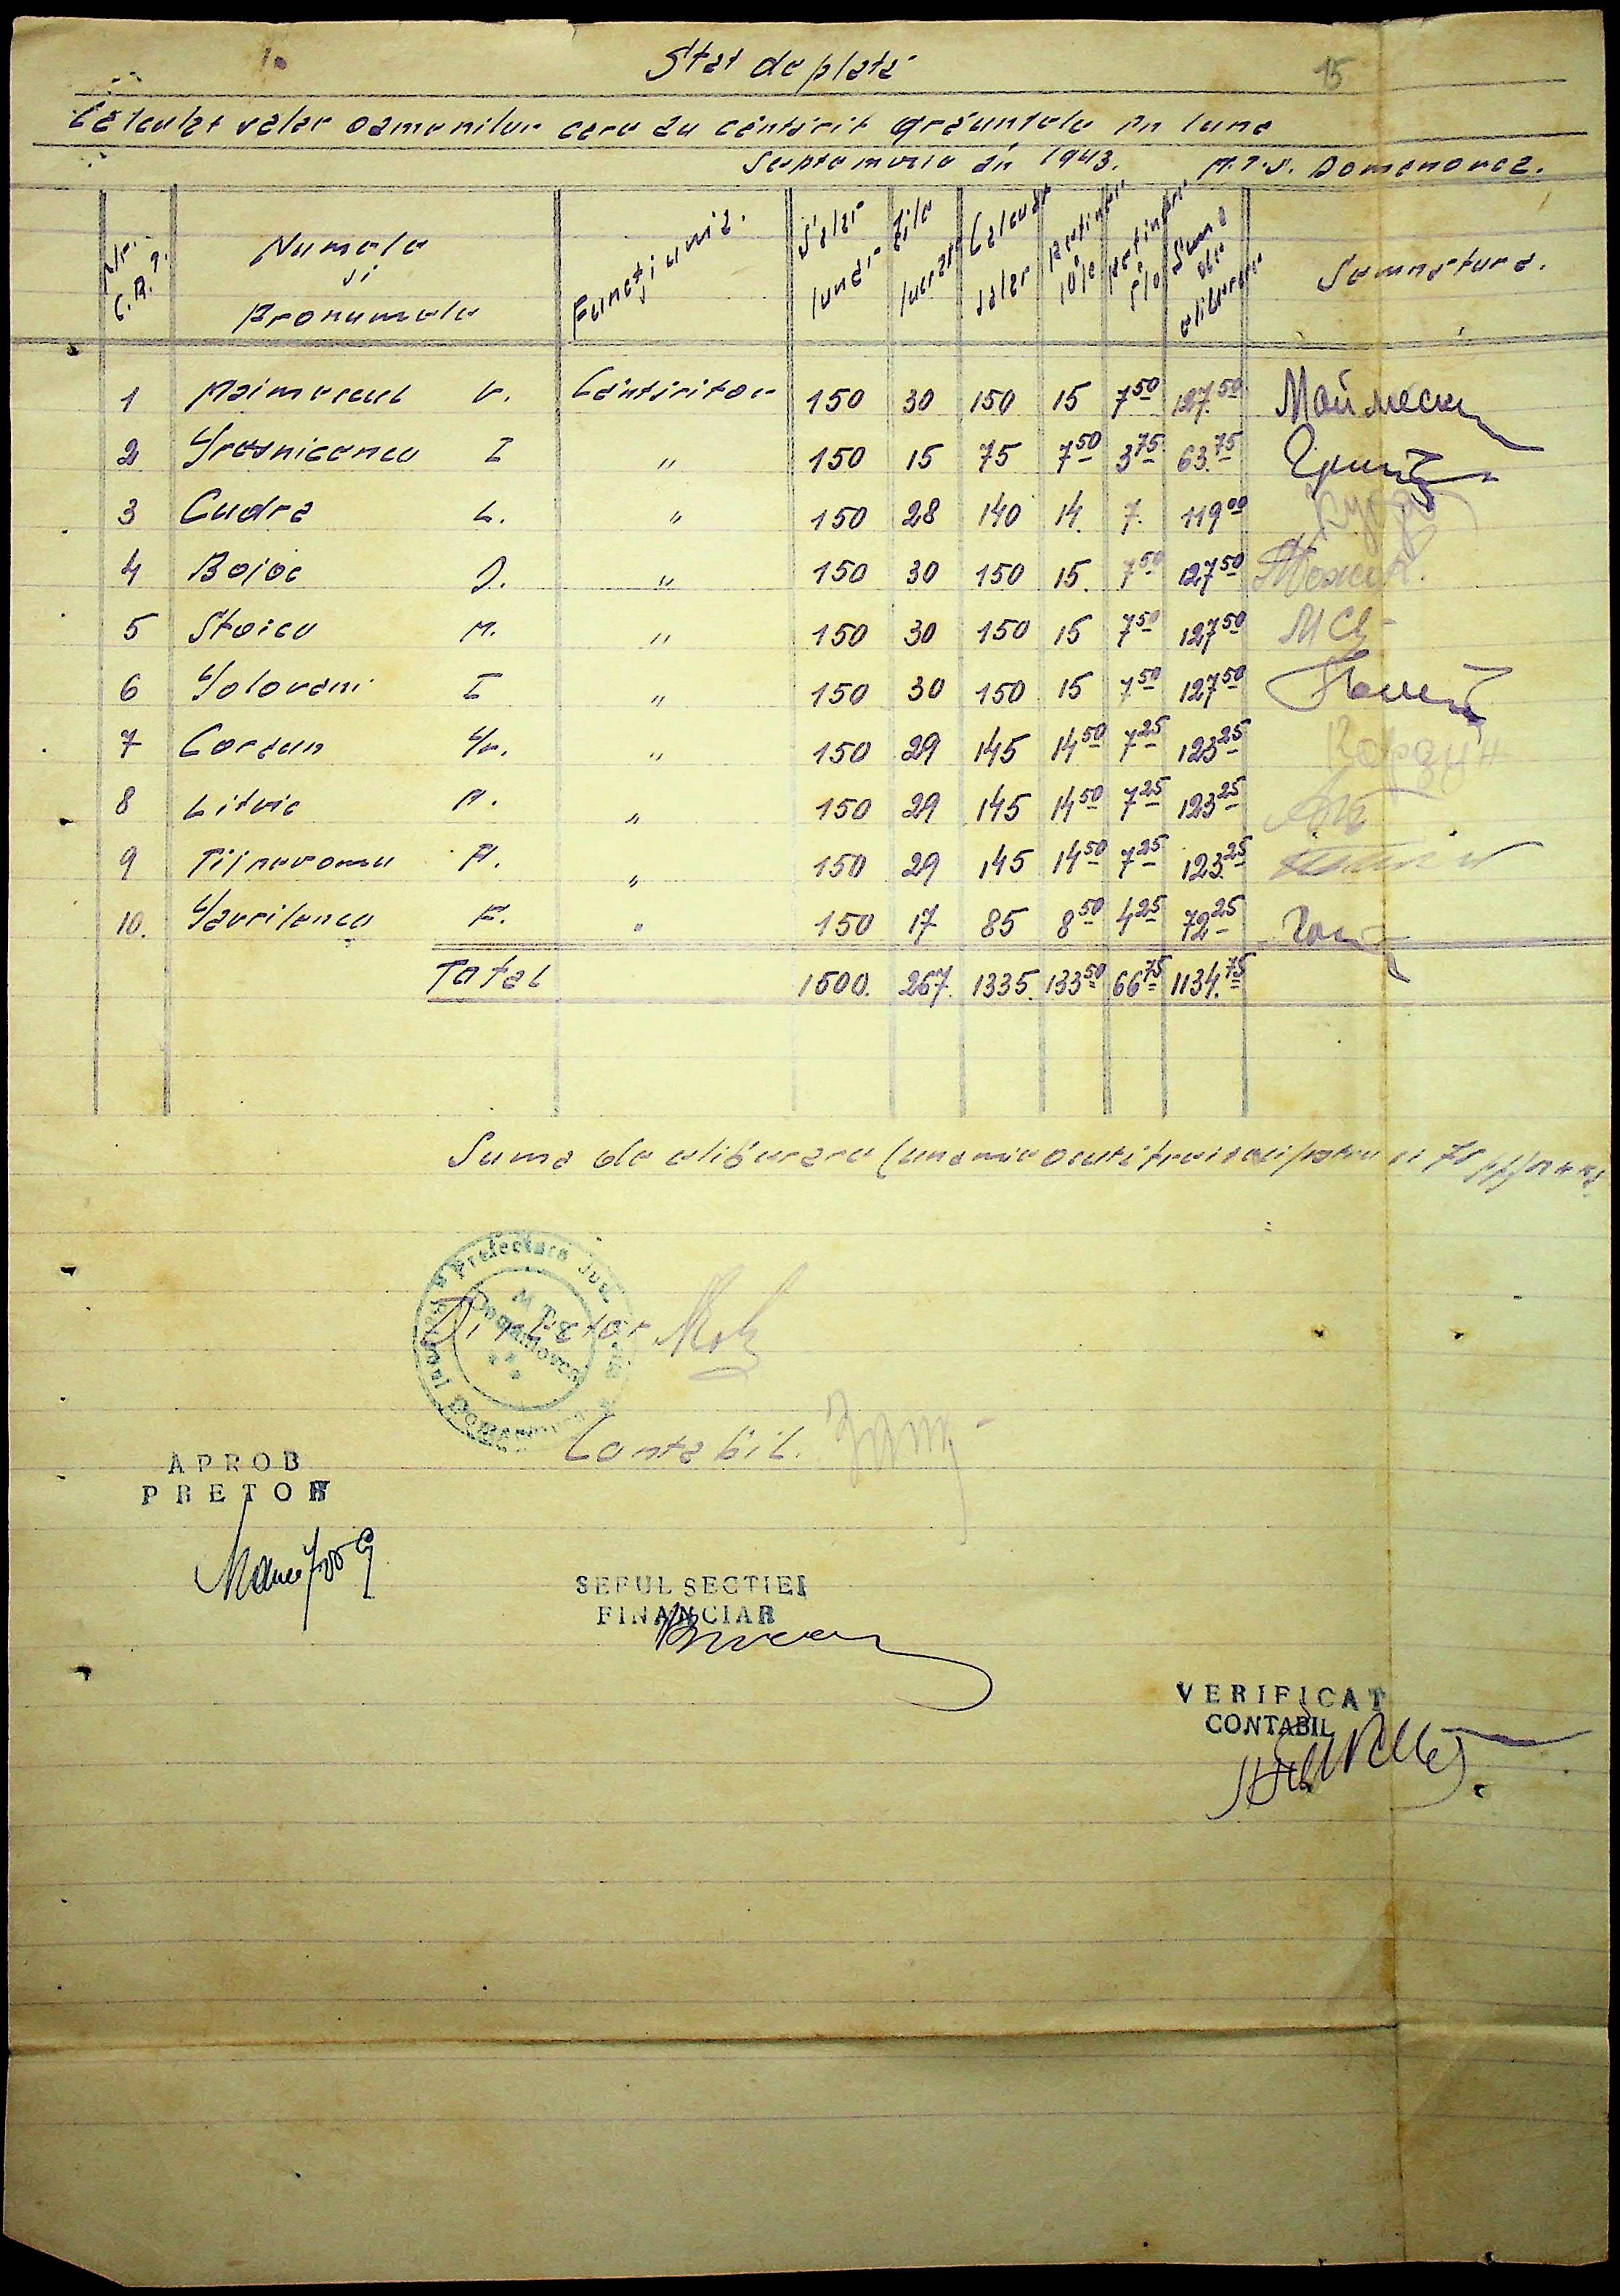 15
Stat de plată
Calculat velor oamenilor care au cântărit grăuntele în luna
Septemvrie an 1943. M.T.S. Domanovca.
Nr. C.R. Numele si Pronumele Functiunia. Salar lunar Zile lucrate Calculat salar Retinere 10% Retinere 5% Suma de eliberare Semnătura.
1 Maimescul V. Cântăritor 150 30 150 15 7 50 127.50 Маймеску
2 I " 150 15 75 7 50 3 75 63.75
3 Cudra L. " 150 28 140 14. 7. 119 00
4 Bojoc J. " 150 30 150 15. 7 50 127 50
5 Stoicu M. " 150 30 150 15 7 50 127 50
6 Golovani I " 150 30 150 15 7 50 127 50
7 Corzun Gr. " 150 29 145 14 50 7 25 123 25 Корзун
8 Litvic A. " 150 29 145 14 50 7 25 123 25
9 A. " 150 29 145 14 50 7 25 123.25
10. Gavrilencu F. " 150 17 85 8 50 4 25 72 25
Total 1500. 267. 1335. 133 50 66 75 1134.75
Suma de eliberare (una mie osuti treizeci patru si 75
Prefectura Jud. M.T.S. Domanovca
Director
Contabil.
APROB
PRETOR
SEFUL SECTIEI
FINANCIAR
VERIFICAT
CONTABIL